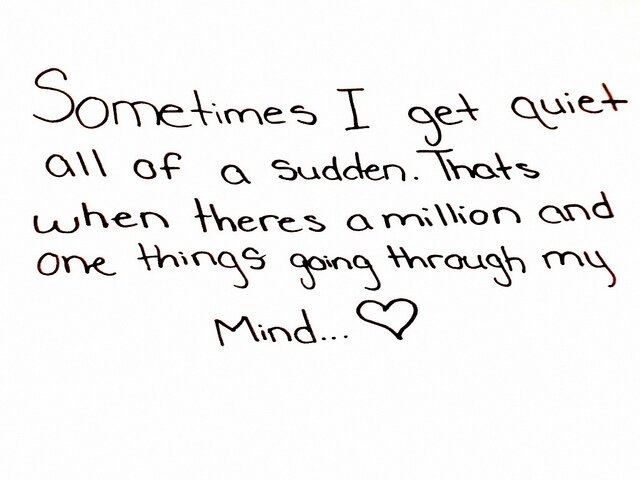 Sometimes I get quiet
all of a sudden. Thats
when theres a million and
one things going through my
Mind... ♡